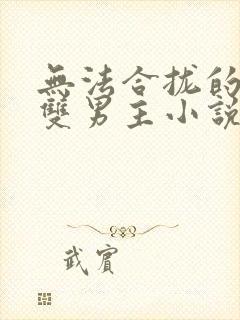 無法合拢的
雙男主小說
武賓